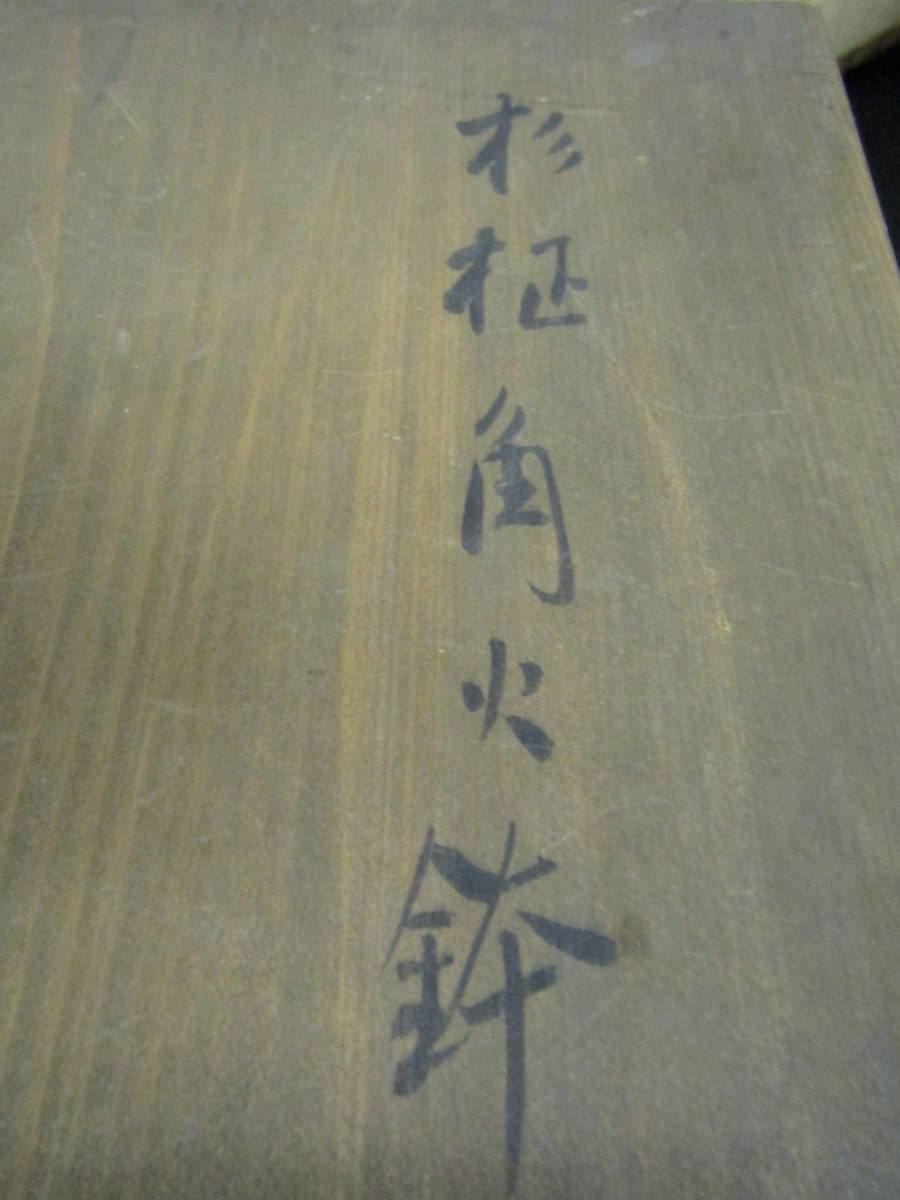 杉柾角火鉢